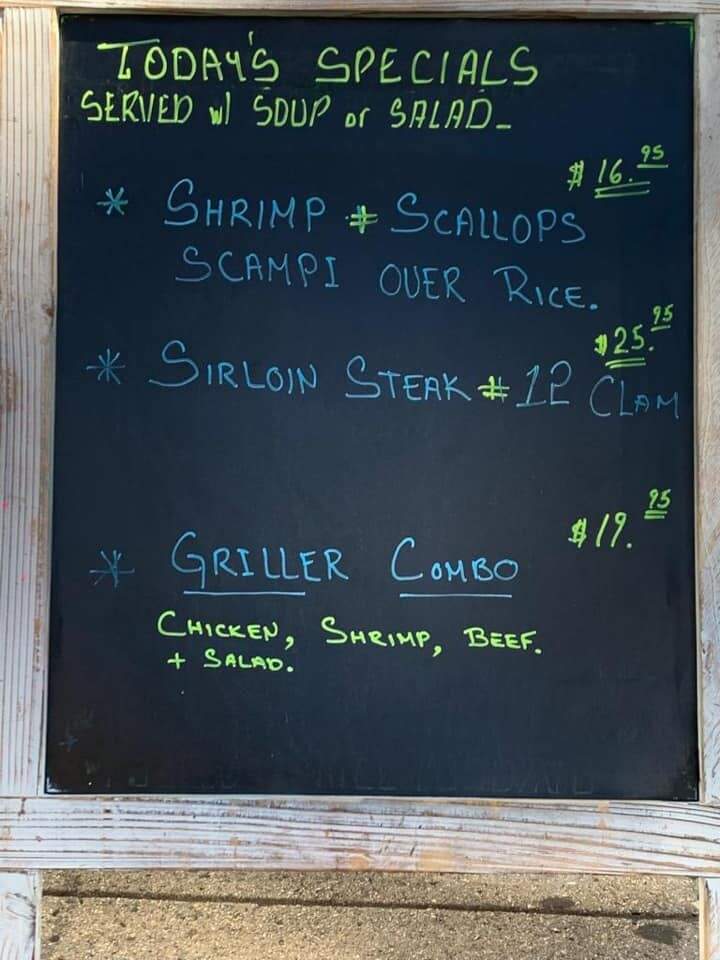 TODAY'S SPECIALS
SERVED w/ SOUP or SALAD_
$16.95
* SHRIMP + SCALLOPS
SCAMPI OVER RICE.
$25.95
* SIRLOIN STEAK + 12 CLAM
$19.95
* GRILLER COMBO
CHICKEN, SHRIMP, BEEF.
+ SALAD.